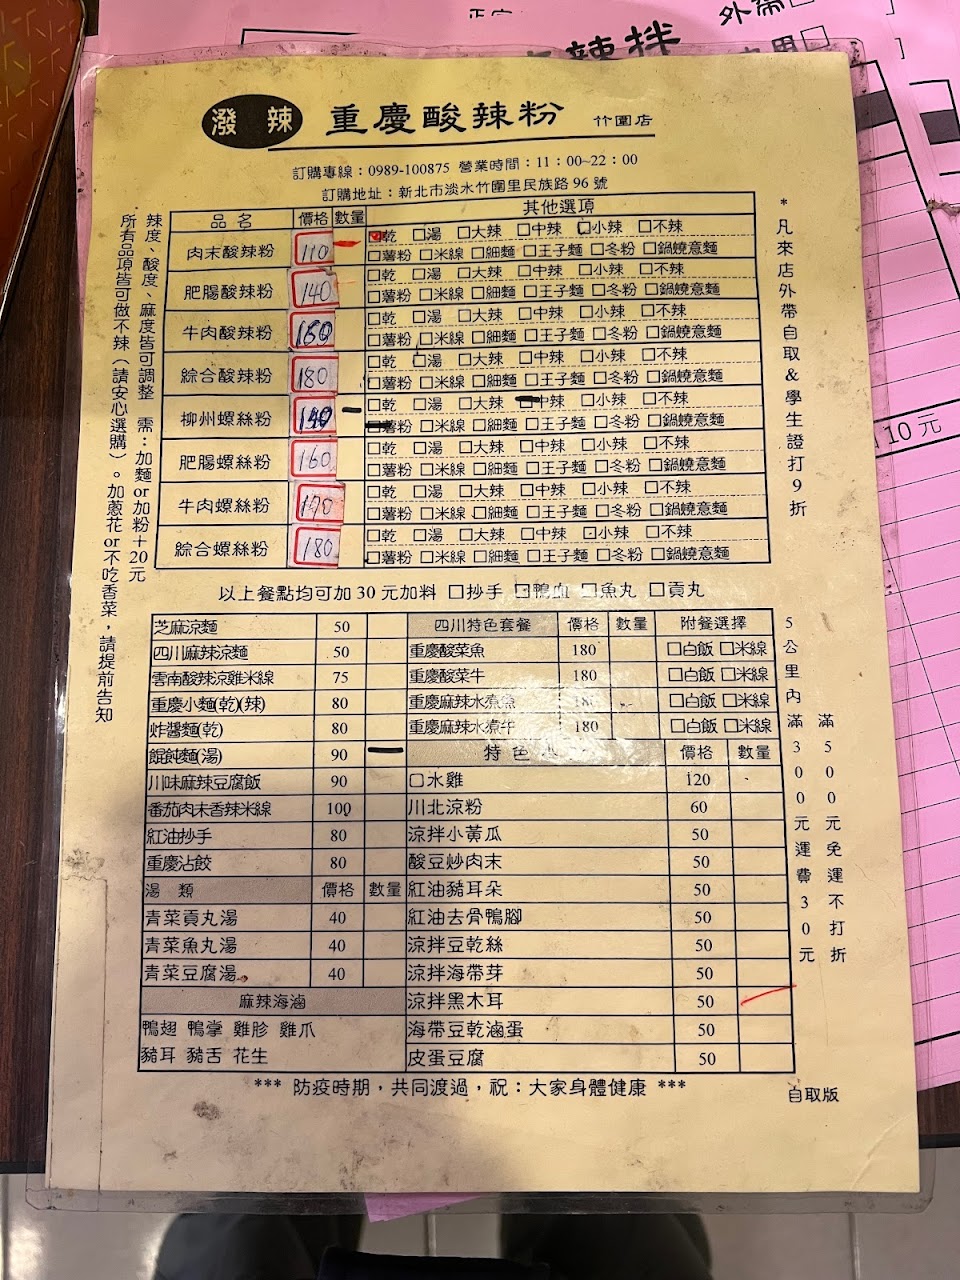 潑辣 重慶酸辣粉 竹圍店
訂購專線：0989-100875 營業時間：11：00~22：00
訂購地址：新北市淡水竹圍里民族路 96 號
品名 價格 數量 其他選項
肉末酸辣粉 110 □乾 □湯 □大辣 □中辣 □小辣 □不辣
□薯粉 □米線 □細麵 □王子麵 □冬粉 □鍋燒意麵
肥腸酸辣粉 140 □乾 □湯 □大辣 □中辣 □小辣 □不辣
□薯粉 □米線 □細麵 □王子麵 □冬粉 □鍋燒意麵
牛肉酸辣粉 160 □乾 □湯 □大辣 □中辣 □小辣 □不辣
□薯粉 □米線 □細麵 □王子麵 □冬粉 □鍋燒意麵
綜合酸辣粉 180 □乾 □湯 □大辣 □中辣 □小辣 □不辣
□薯粉 □米線 □細麵 □王子麵 □冬粉 □鍋燒意麵
柳州螺絲粉 140 □乾 □湯 □大辣 □中辣 □小辣 □不辣
□薯粉 □米線 □細麵 □王子麵 □冬粉 □鍋燒意麵
肥腸螺絲粉 160 □乾 □湯 □大辣 □中辣 □小辣 □不辣
□薯粉 □米線 □細麵 □王子麵 □冬粉 □鍋燒意麵
牛肉螺絲粉 170 □乾 □湯 □大辣 □中辣 □小辣 □不辣
□薯粉 □米線 □細麵 □王子麵 □冬粉 □鍋燒意麵
綜合螺絲粉 180 □乾 □湯 □大辣 □中辣 □小辣 □不辣
□薯粉 □米線 □細麵 □王子麵 □冬粉 □鍋燒意麵
辣度、酸度、麻度皆可調整 需：加麵 or 加粉＋20元
所有品項皆可做不辣（請安心選購）。加蔥花 or 不吃香菜，請提前告知
*凡來店外帶自取&學生證打9折
以上餐點均可加 30 元加料 □抄手 □鴨血 □魚丸 □貢丸
芝麻涼麵 50
四川麻辣涼麵 50
雲南酸辣涼雞米線 75
重慶小麵(乾)(辣) 80
炸醬麵(乾) 80
餛飩麵(湯) 90
川味麻辣豆腐飯 90
番茄肉末香辣米線 100
紅油抄手 80
重慶沾餃 80
湯 類 價格 數量
青菜貢丸湯 40
青菜魚丸湯 40
青菜豆腐湯 40
麻辣海滷
鴨翅 鴨掌 雞胗 雞爪
豬耳 豬舌 花生
四川特色套餐 價格 數量 附餐選擇
重慶酸菜魚 180 □白飯 □米線
重慶酸菜牛 180 □白飯 □米線
重慶麻辣水煮魚 180 □白飯 □米線
重慶麻辣水煮牛 180 □白飯 □米線
特色 價格 數量
口水雞 120
川北涼粉 60
涼拌小黃瓜 50
酸豆炒肉末 50
紅油豬耳朵 50
紅油去骨鴨腳 50
涼拌豆乾絲 50
涼拌海帶芽 50
涼拌黑木耳 50
海帶豆乾滷蛋 50
皮蛋豆腐 50
5公里內滿300元運費30元
滿500元免運不打折
*** 防疫時期，共同渡過，祝：大家身體健康 ***
自取版
辣拌
10 元